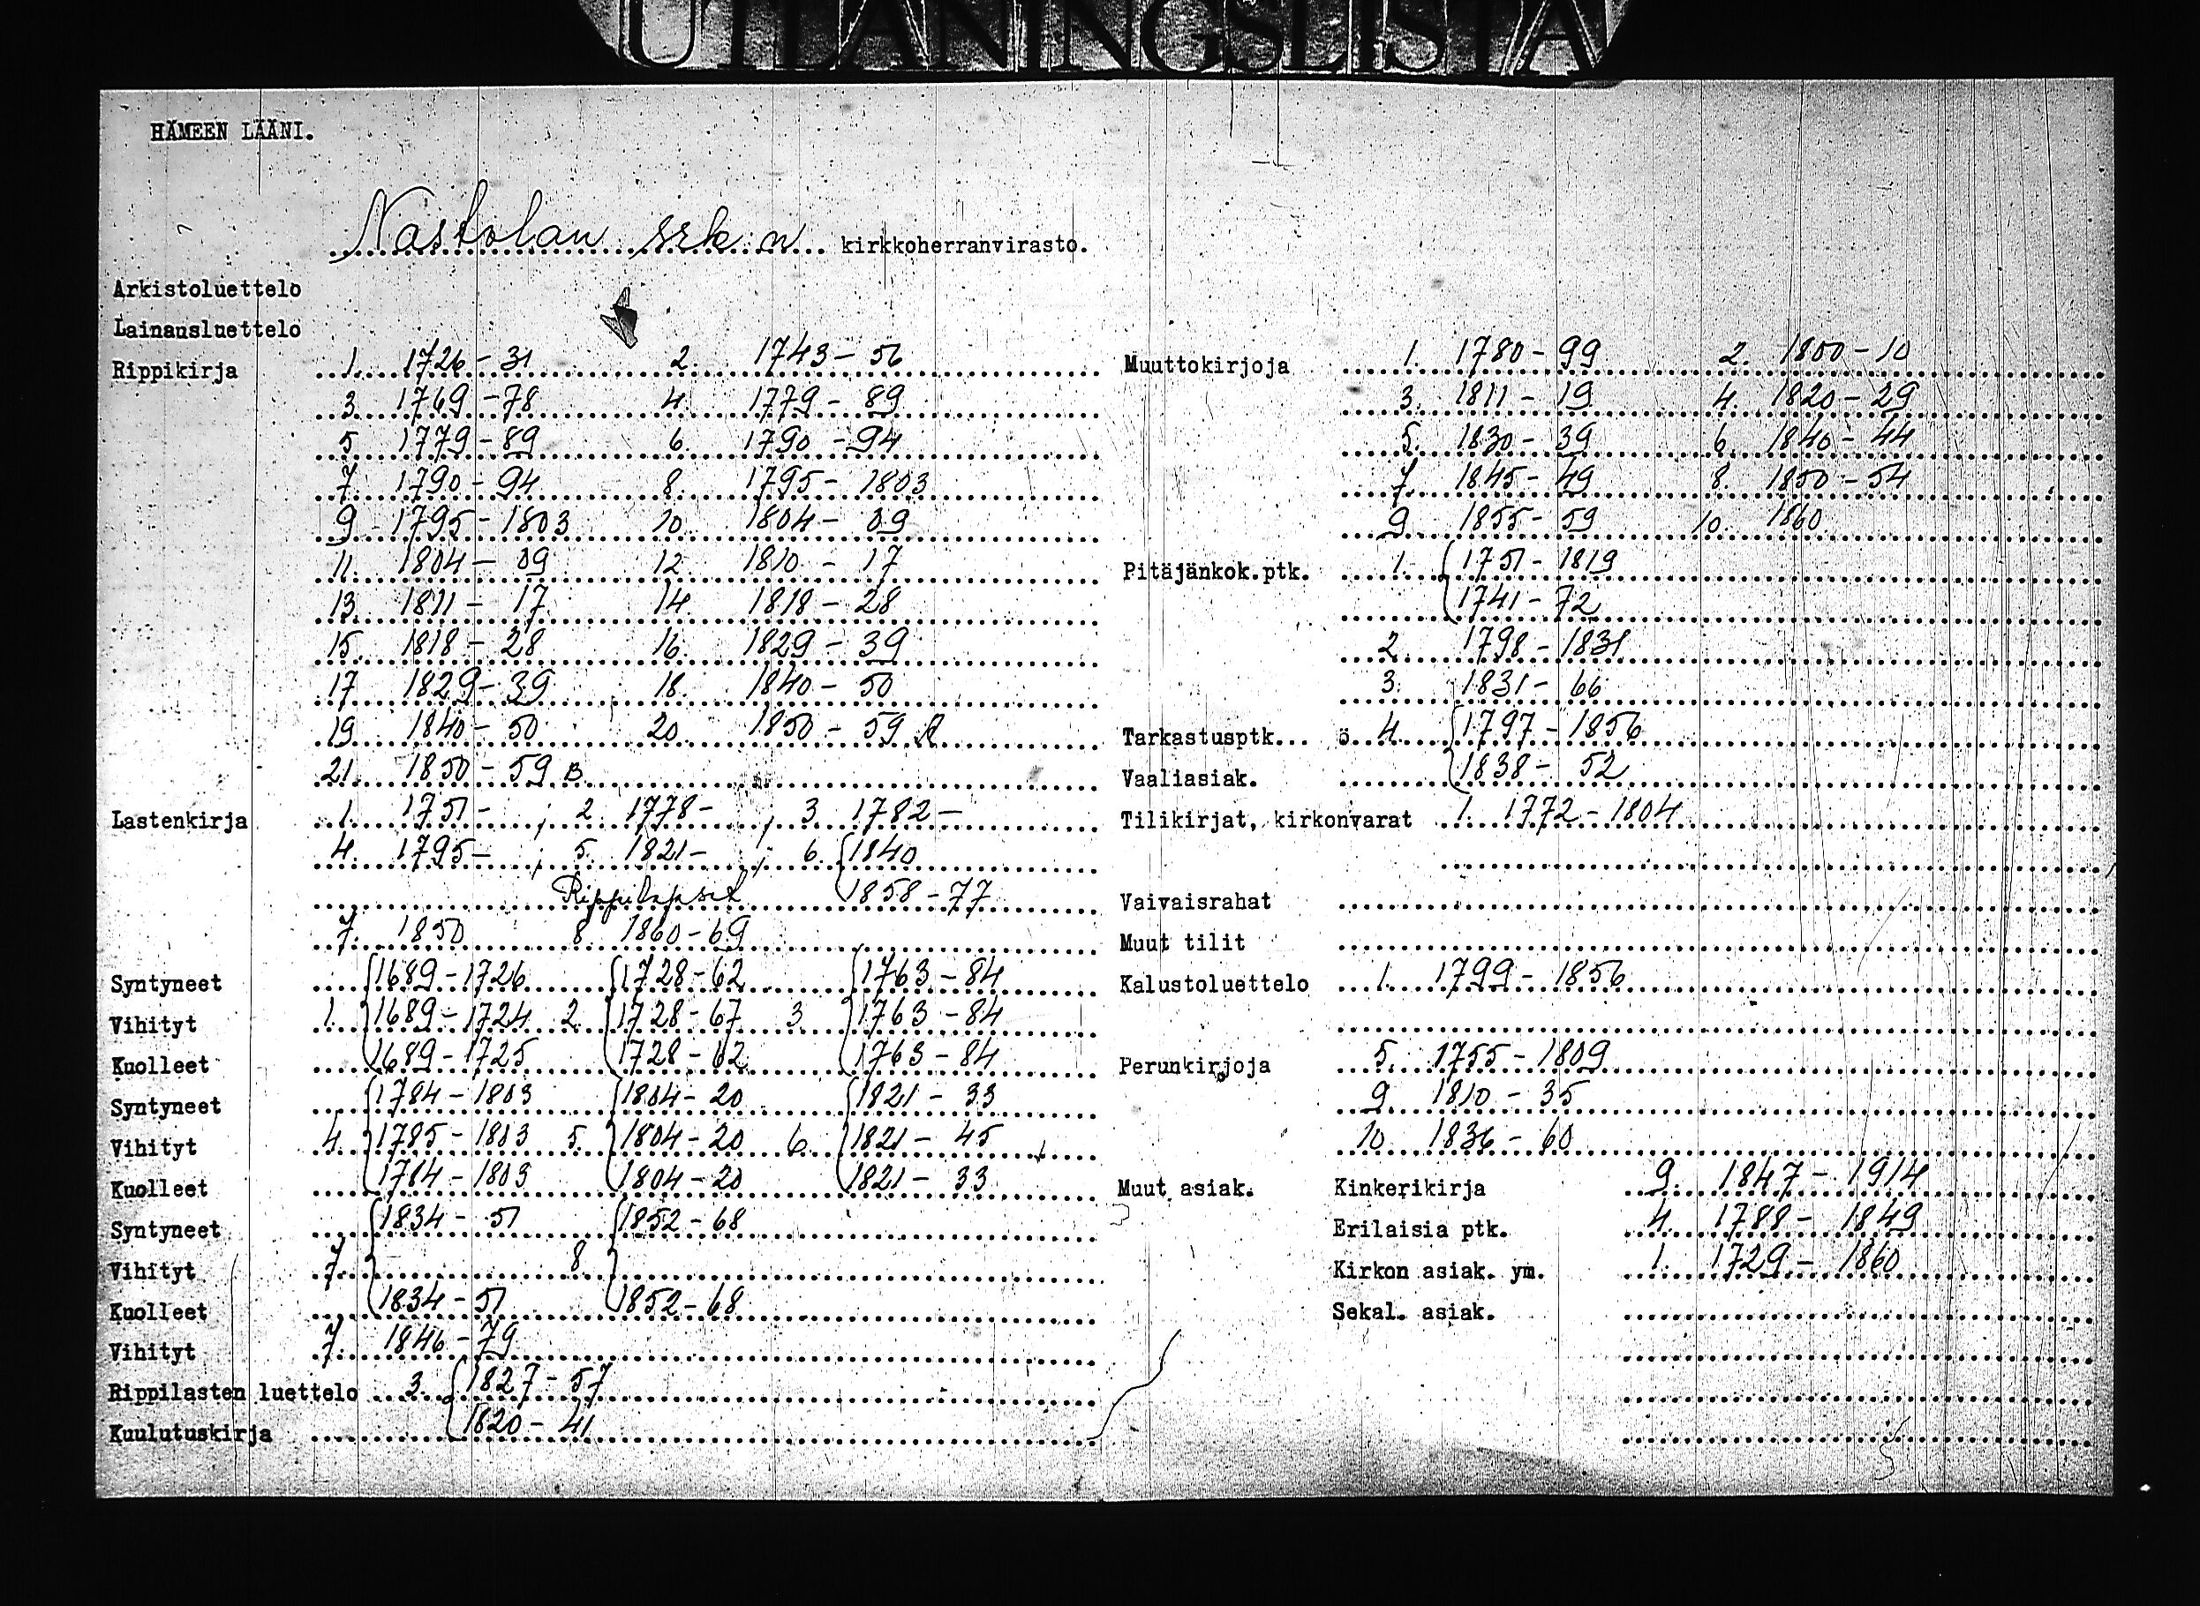 UTLÅNINGSLISTA
HÄMEEN LÄÄNI.
Nastolan srk:n kirkkoherranvirasto.
Arkistoluettelo
Lainausluettelo
Rippikirja 1. 1726-31 2. 1743-56
3. 1769-78 4. 1779-89
5. 1779-89 6. 1790-94
7. 1790-94 8. 1795-1803
9. 1795-1803 10. 1804-09
11. 1804-09 12. 1810-17
13. 1811-17 14. 1818-28
15. 1818-28 16. 1829-39
17. 1829-39 18. 1840-50
19. 1840-50 20. 1850-59 A
21. 1850-59 B
Lastenkirja 1. 1751- ; 2. 1778- ; 3. 1782-
4. 1795- ; 5. 1821- ; 6. 1840
Rippilapset 1858-77
7. 1850 8. 1860-69
Syntyneet 1689-1726 1728-62 1763-84
Vihityt 1. 1689-1724 2. 1728-67 3. 1763-84
Kuolleet 1689-1725 1728-62 1763-84
Syntyneet 1784-1803 1804-20 1821-33
Vihityt 4. 1785-1803 5. 1804-20 6. 1821-45
Kuolleet 1784-1803 1804-20 1821-33
Syntyneet 1834-51 1852-68
Vihityt 7. 8.
Kuolleet 1834-51 1852-68
Vihityt 7. 1846-79
Rippilasten luettelo 3. 1827-57
Kuulutuskirja 1820-41
Muuttokirjoja 1. 1780-99 2. 1800-10
3. 1811-19 4. 1820-29
5. 1830-39 6. 1840-44
7. 1845-49 8. 1850-54
9. 1855-59 10. 1860
Pitäjänkok.ptk. 1. 1751-1819
1741-72
2. 1798-1831
3. 1831-66
Tarkastusptk... ö 4. 1797-1856
Vaaliasiak. 1838-52
Tilikirjat, kirkonvarat 1. 1772-1804
Vaivaisrahat
Muut tilit
Kalustoluettelo 1. 1799-1856
Perunkirjoja 5. 1755-1809
9. 1810-35
10. 1836-60
Muut asiak. Kinkerikirja 9. 1847-1914
Erilaisia ptk. 4. 1788-1849
Kirkon asiak. ym. 1. 1729-1860
Sekal. asiak.